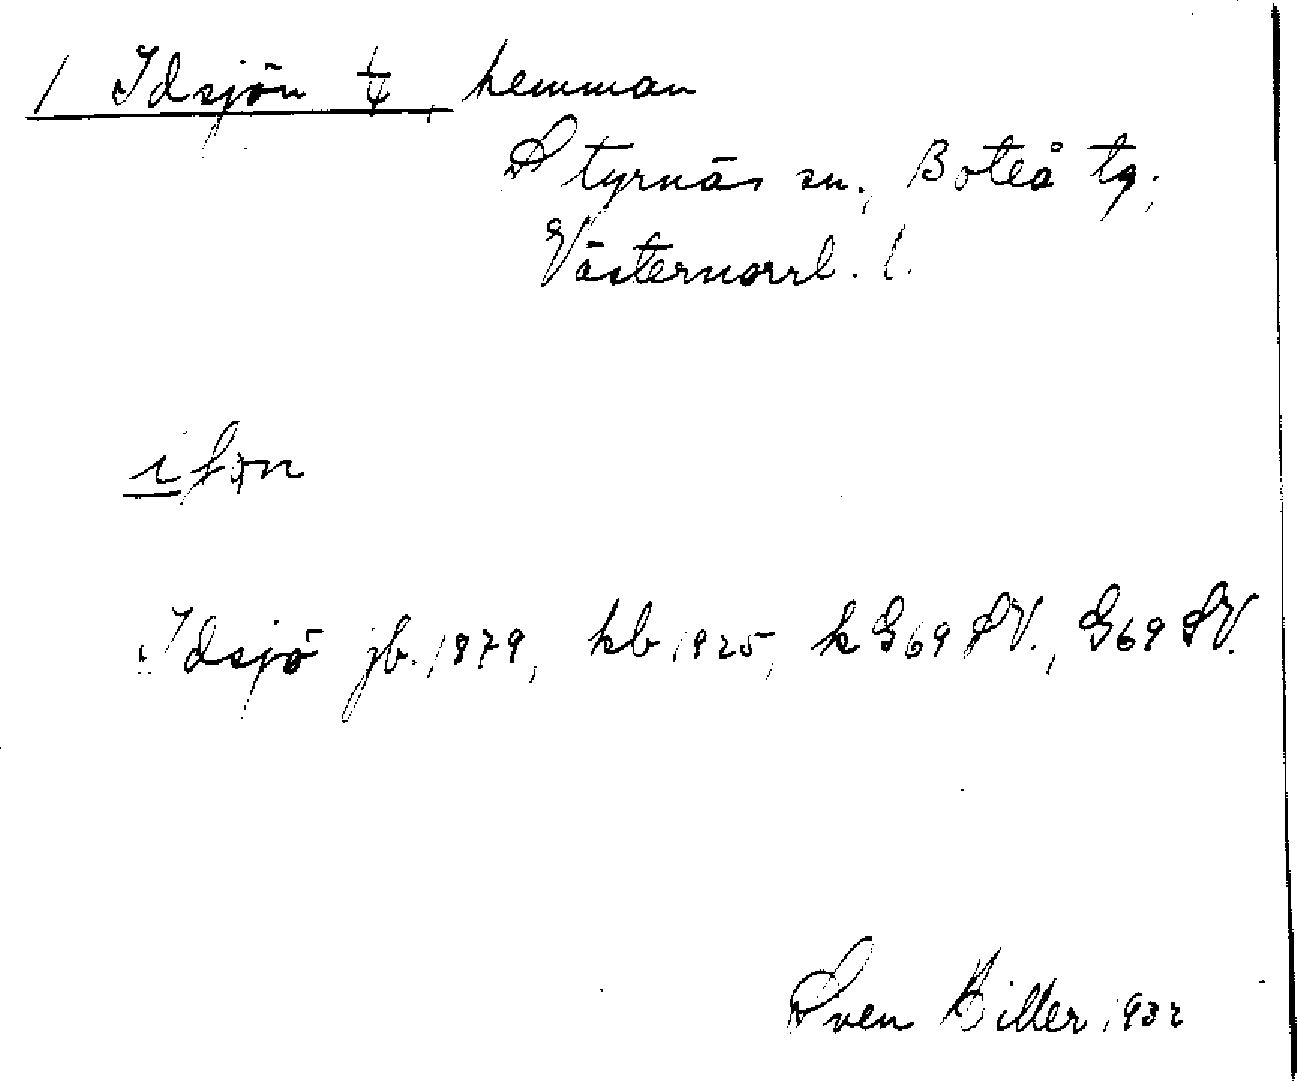 1 Idsjön ¼, hemman
Styrnäs sn., Boteå tg.,
Västernorrl. l.
Idsjö jb. 1879, kb 1925, k G69 SV., G69 SV.
Sven Hiller 1932